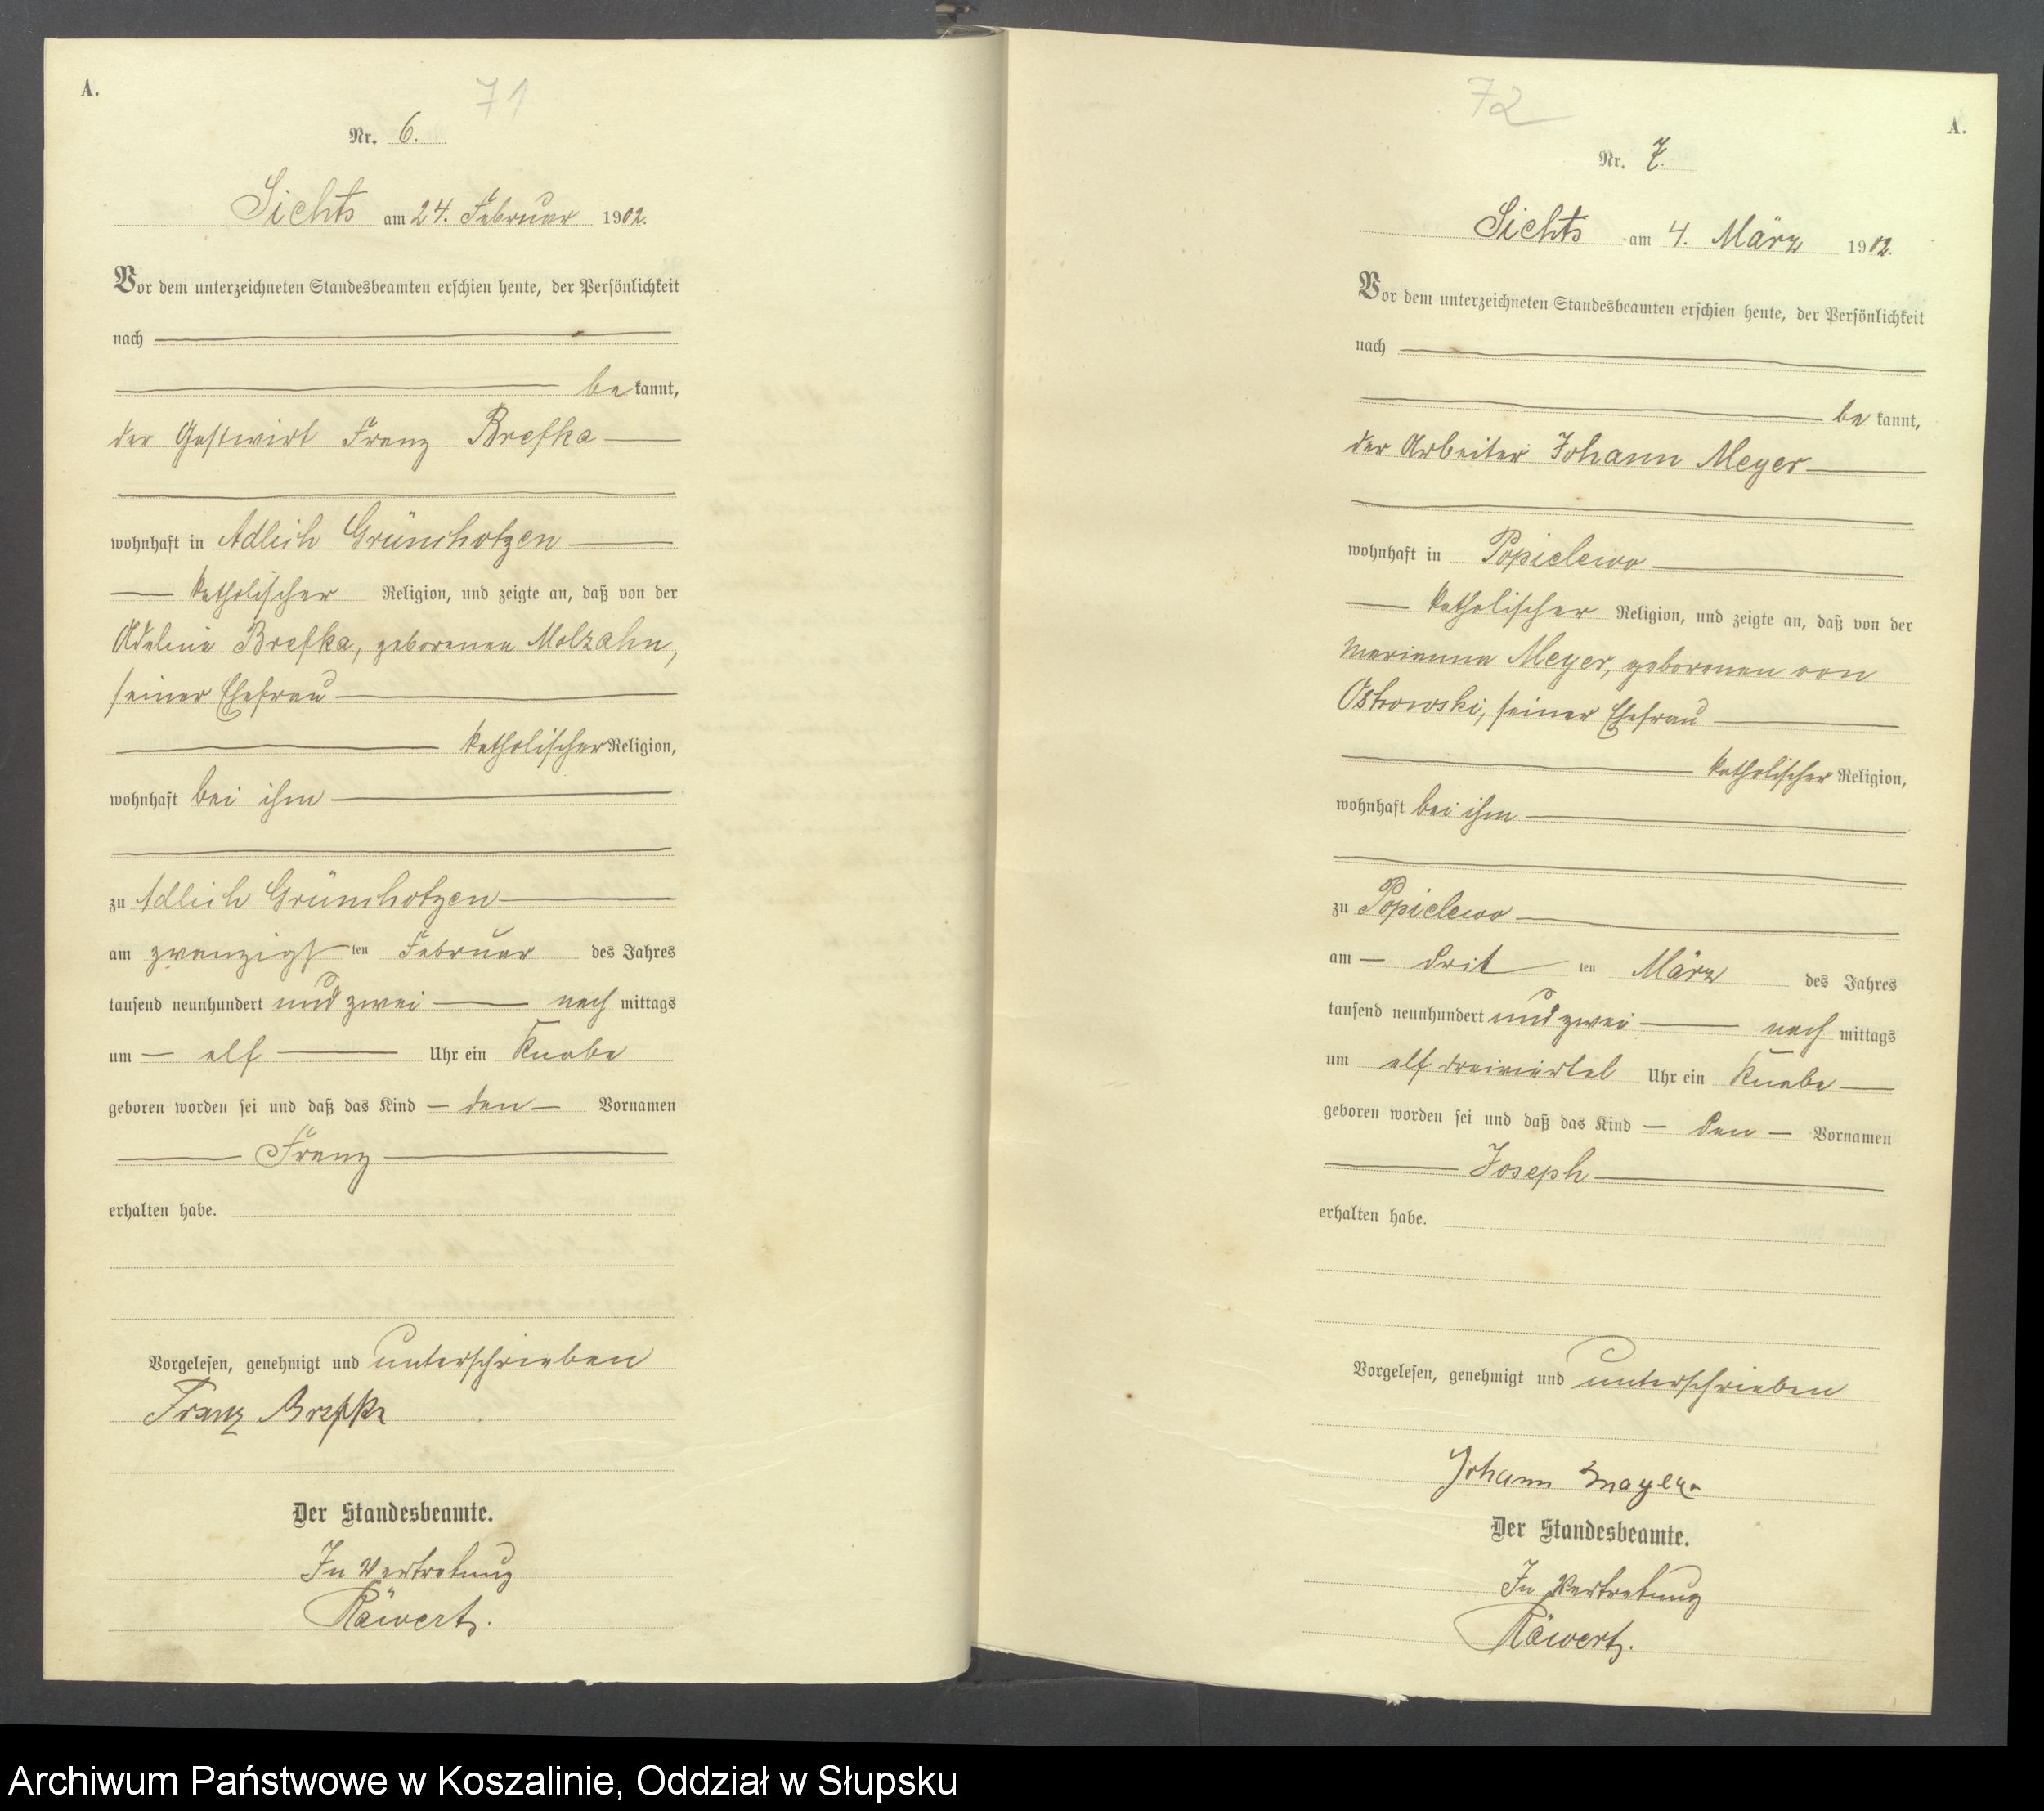 A.
71
Nr. 6.
Sichts am 24. Februar 1902.
Vor dem unterzeichneten Standesbeamten erschien heute, der Persönlichkeit
nach
be kannt,
der Gastwirt Franz Brefka
wohnhaft in Adlich Grünchotzen
katholischer Religion, und zeigte an, daß von der
Adeline Brefka, geborenen Molzahn,
seiner Ehefrau
katholischer Religion,
wohnhaft bei ihm
zu Adlich Grünchotzen
am zwanzigsten Februar des Jahres
tausend neunhundert und zwei nach mittags
um elf Uhr ein Knabe
geboren worden sei und daß das Kind den Vornamen
Franz
erhalten habe.
Vorgelesen, genehmigt und unterschrieben
Franz Brefka
Der Standesbeamte.
In Vertretung
Räwert.
72
A.
Nr. 7.
Sichts am 4. März 1902.
Vor dem unterzeichneten Standesbeamten erschien heute, der Persönlichkeit
nach
be kannt,
der Arbeiter Johann Meyer
wohnhaft in Popielewo
katholischer Religion, und zeigte an, daß von der
Marianna Meyer, geborenen von
Ostrowski, seiner Ehefrau
katholischer Religion,
wohnhaft bei ihm
zu Popielewo
am dritten März des Jahres
tausend neunhundert und zwei nach mittags
um elf dreiviertel Uhr ein Knabe
geboren worden sei und daß das Kind den Vornamen
Joseph
erhalten habe.
Vorgelesen, genehmigt und unterschrieben
Johann Mayer
Der Standesbeamte.
In Vertretung
Räwert.
Archiwum Państwowe w Koszalinie, Oddział w Słupsku